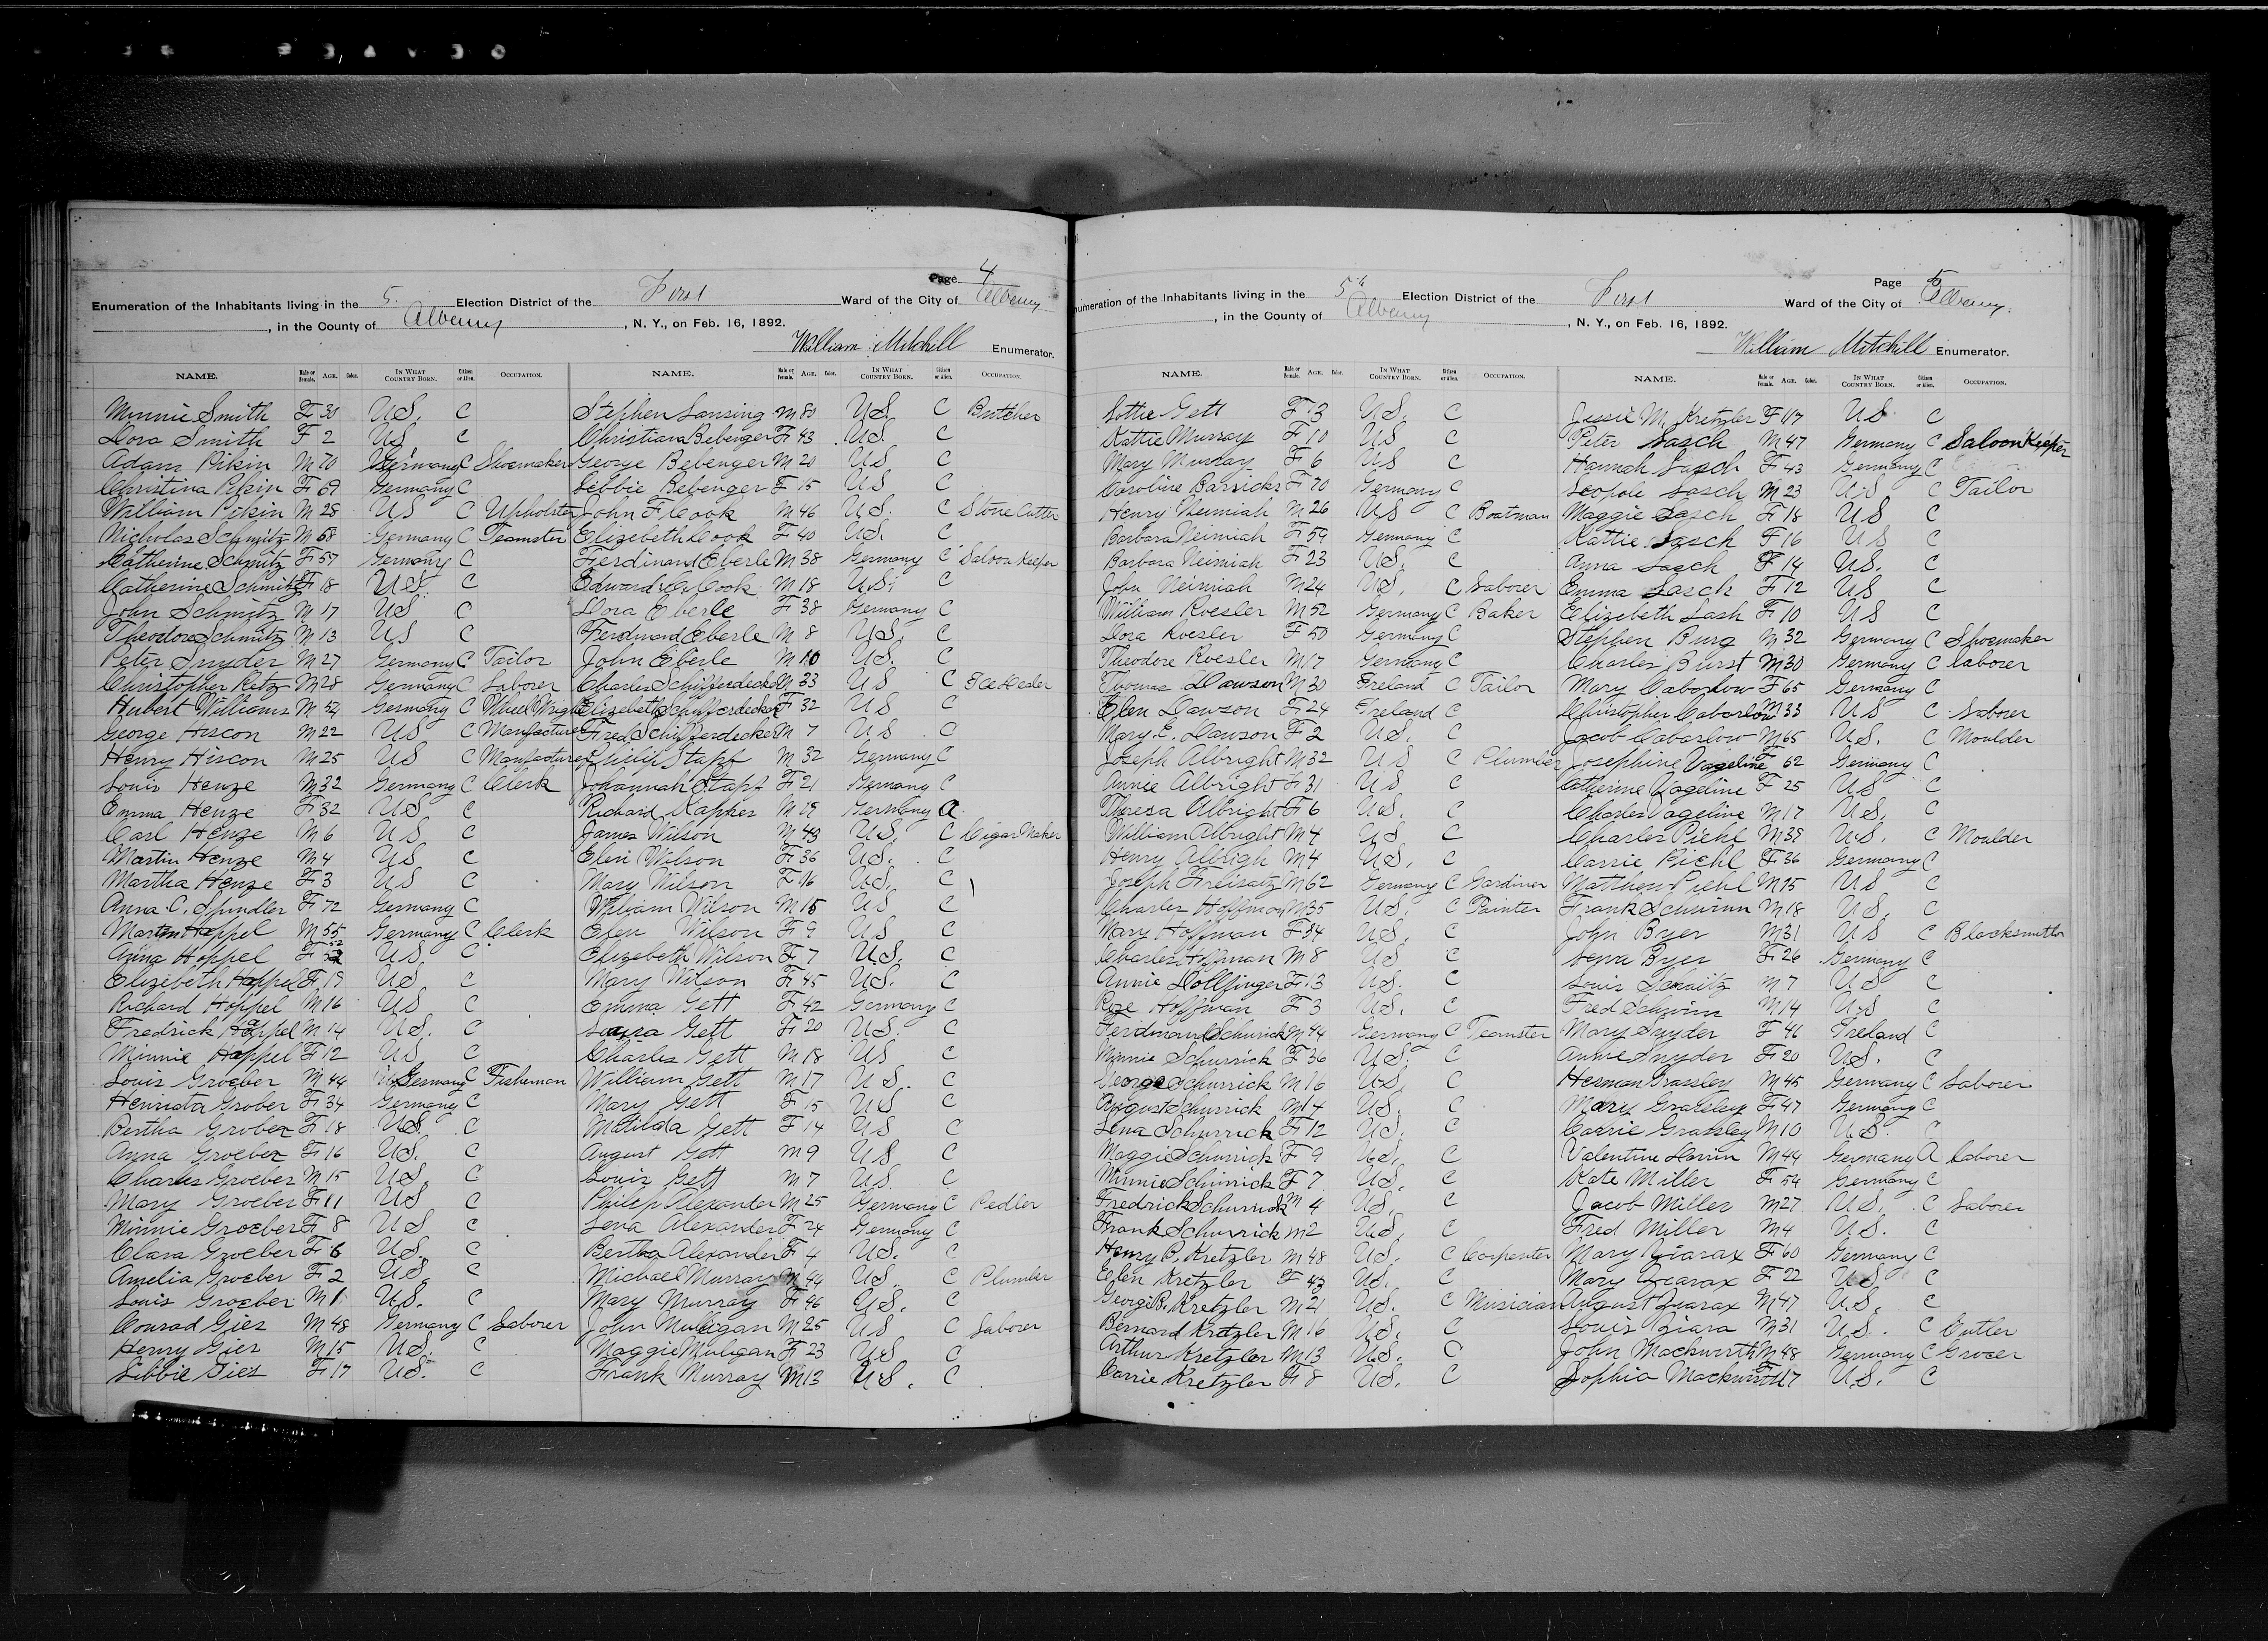 Page 4
Enumeration of the Inhabitants living in the 5. Election District of the First Ward of the City of Albany
, in the County of Albany, N. Y., on Feb. 16, 1892.
William Mitchell Enumerator.
NAME. Male or Female. AGE. Color. IN WHAT COUNTRY BORN. Citizen or Alien. OCCUPATION.
Minnie Smith F 30 U.S. C
Dora Smith F 2 U.S. C
Adam Pikin M 70 Germany C Shoemaker
Christina Pikin F 69 Germany C
William Pikin M 28 US C Upholster
Nicholas Schmitz M 58 Germany C Teamster
Catherine Schmitz F 57 Germany C
Catherine Schmitz F 18 U.S. C
John Schmitz M 17 US C
Theodore Schmitz M 13 US C
Peter Snyder M 27 Germany C Tailor
Christopher Retz M 28 Germany C Laborer
Hubert Williams M 54 Germany C Wheel Wright
George Hiscon M 22 US C Manufacturer
Henry Hiscon M 25 US C Manufacturer
Louis Henze M 32 Germany C Clerk
Emma Henze F 32 US C
Carl Henze M 6 US C
Martin Henze M 4 US C
Martha Henze F 3 US C
Anna C. Spindler F 72 Germany C
Martin Happel M 55 Germany C Clerk
Anna Happel F 52 U.S. C
Elizebeth Happel F 19 US C
Richard Hoppel M 16 US C
Fredrick Happel M 14 U.S. C
Minnie Happel F 12 US C
Louis Groeber M 44 Germany C Fisheman
Henriata Grober F 34 Germany C
Bertha Grober F 18 US C
Anna Groeber F 16 US. C
Charles Groeber M 15 U.S. C
Mary Groeber F 11 US C
Minnie Groeber F 8 US C
Clara Groeber F 6 US. C
Amelia Groeber F 2 U.S. C
Louis Groeber M 1 U.S. C
Conrad Gies M 48 Germany C Laborer
Henry Gies M 15 U.S. C
Libbie Gies F 17 U.S. C
NAME. Male or Female. AGE. Color. IN WHAT COUNTRY BORN. Citizen or Alien. OCCUPATION.
Stephen Lansing M 80 U.S. C Butcher
Christiana Bebenger F 43 U.S. C
George Bebenger M 20 US C
Libbie Bebenger F 15 US C
John F. Cook M 46 U.S. C Stone Cutter
Elizebeth Cook F 40 U.S. C
Ferdinand Eberle M 38 Germany C Saloon Keeper
Edward Cook M 18 U.S. C
Dora Eberle F 38 Germany C
Ferdinand Eberle M 8 U.S. C
John Eberle M 10 U.S. C
Charles Schifferdecker M 33 US C Ice Dealer
Elizebeth Schifferdecker F 32 US C
Fred Schifferdecker M 7 US C
Philip Stapf M 32 Germany C
Johannah Stapf F 21 Germany C
Richard Kapkes M 19 Germany A
James Wilson M 43 U.S. C Cigar Maker
Elen Wilson F 36 U.S. C
Mary Wilson F 16 U.S. C
William Wilson M 15 US C
Elen Wilson F 9 US C
Elizebeth Wilson F 7 U.S. C
Mary Wilson F 45 U.S. C
Emma Gett F 42 Germany C
Gett F 20 U.S. C
Charles Gett M 18 US C
William Gett M 17 U.S. C
Mary Gett F 15 US C
Matilda Gett F 14 US C
August Gett M 9 US C
Louis Gett M 7 US C
Philip Alexander M 25 Germany C Pedler
Lena Alexander F 24 Germany C
Bertha Alexander F 4 U.S. C
Michael Murray M 44 U.S. C Plumber
Mary Murray F 46 U.S. C
John Muligan M 25 US C Laborer
Maggie Muligan F 23 US C
Frank Murray M 13 U.S. C
Page 5
Enumeration of the Inhabitants living in the 5th Election District of the First Ward of the City of Albany.
, in the County of Albany, N. Y., on Feb. 16, 1892.
William Mitchell Enumerator.
NAME. Male or Female. AGE. Color. IN WHAT COUNTRY BORN. Citizen or Alien. OCCUPATION.
Lottie Gett F 3 U.S. C
Kattie Murray F 10 US C
Mary Murray F 6 US C
Caroline Barsicks F 70 Germany C
Henry Neimiah M 26 US C Boatman
Barbara Neimiah F 59 Germany C
Barbara Neimiah F 23 U.S. C
John Neimiah M 24 U.S. C Laborer
William Roesler M 52 Germany C Baker
Dora Roesler F 50 Germany C
Theodore Roesler M 17 Germany C
Thomas Dawson M 30 Ireland C Tailor
Elen Dawson F 24 Ireland C
Mary E. Dawson F 2 U.S. C
Joseph Albright M 32 US C Plumber
Annie Albright F 31 US C
Theresa Albright F 6 U.S. C
William Albright M 4 US C
Henry Albrigh M 4 U.S. C
Joseph Freisatz M 62 Germany C Gardiner
Charles Hoffman M 35 U.S. C Painter
Mary Hoffman F 34 U.S. C
Charles Hoffman M 8 US C
Annie Dollfinger F 13 U.S. C
Roze Hoffman F 3 U.S. C
Ferdinand Schurrick M 44 Germany C Teamster
Minnie Schurrick F 36 U.S. C
George Schurrick M 16 U.S. C
August Schurrick M 14 U.S. C
Lena Schurrick F 12 U.S. C
Maggie Schurrick F 9 U.S. C
Minnie Schurrick F 7 U.S. C
Fredrick Schurrick M 4 U.S. C
Frank Schurrick M 2 U.S. C
Henry P. Kretzler M 48 U.S. C Carpenter
Elen Kretzler F 43 U.S. C
George B. Kretzler M 21 U.S. C Musician
Bernard Kretzler M 16 U.S. C
Arthur Kretzler M 13 U.S. C
Carrie Kretzler F 8 U.S. C
NAME. Male or Female. AGE. Color. IN WHAT COUNTRY BORN. Citizen or Alien. OCCUPATION.
Jessie M. Kretzler F 17 US C
Peter Lasch M 47 Germany C Saloon Keeper
Hannah Lasch F 43 Germany C
Leopole Lasch M 23 U.S. C Tailor
Maggie Lasch F 18 US C
Kattie Lasch F 16 US C
Anna Lasch F 14 U.S. C
Emma Lasch F 12 US C
Elizebeth Lash F 10 US C
Stephen Burg M 32 Germany C Shoemaker
Charles Burst M 30 Germany C laborer
Mary Cabarlow F 65 Germany C
Christopher Cabarlow M 33 US C Laborer
Jacob Cabarlow M 65 U.S. C Moulder
Josephine Vageline F 62 Germany C
Catherine Vageline F 25 US C
Charles Vageline M 17 U.S. C
Charles Piehl M 39 U.S. C Moulder
Carrie Piehl F 36 Germany C
Matthew Piehl M 15 US C
Frank Schwinn M 18 U.S. C
John Byer M 31 US C Blacksmith
Byer F 26 Germany C
Louis M 7 US C
Fred Schwinn M 14 U.S. C
Mary Snyder F 46 Ireland C
Annie Snyder F 20 U.S. C
Herman Grassley M 45 Germany C Laborer
Mary Grassley F 47 Germany C
Carrie Grassley M 10 U.S. C
Valentine M 44 Germany A laborer
Kate Miller F 54 Germany C
Jacob Miller M 27 U.S. C Laborer
Fred Miller M 4 U.S. C
Mary Ziarax F 60 Germany C
Mary Ziarax F 22 U.S. C
August Ziarax M 47 U.S. C
Louis Ziara M 31 U.S. C Cutler
John Mackwirth M 48 Germany C Grocer
Sophia Mackwirth F 17 U.S. C